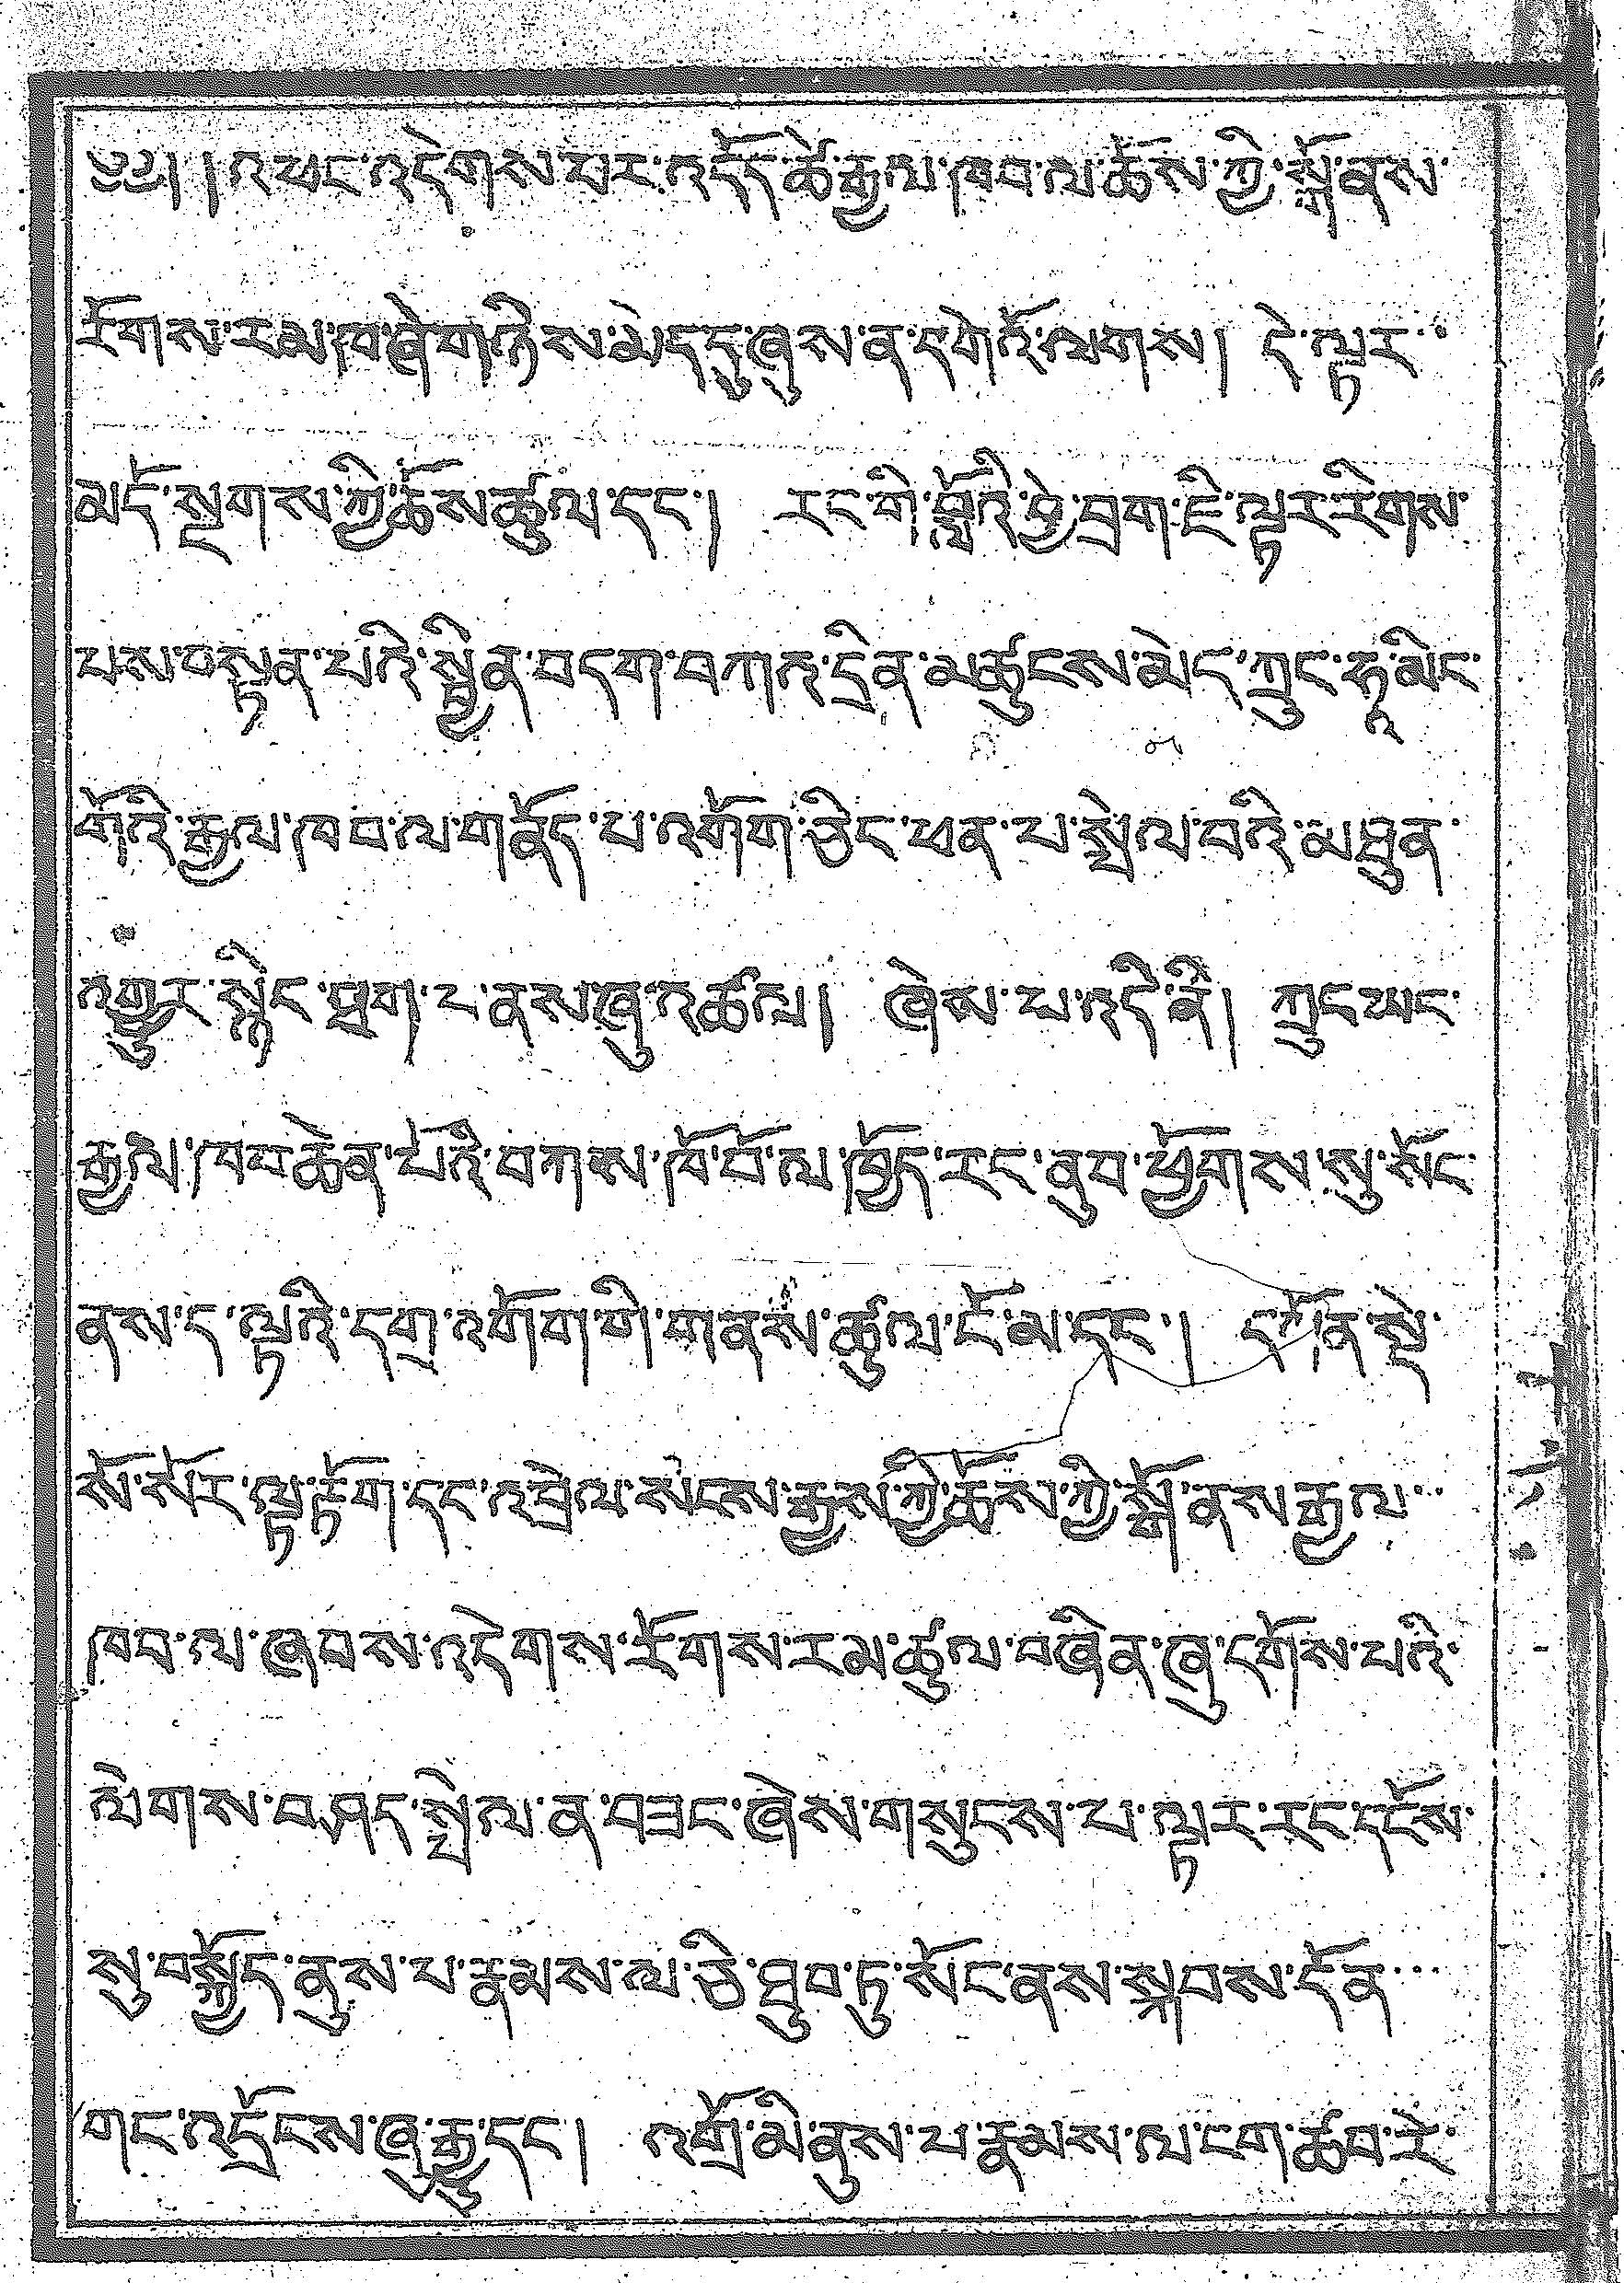 ༄༅། །འཕང་འདེགས་པར་འདོད་ཚེ་རྒྱལ་ཁབ་ལ་ཆོས་ཀྱི་སྒོ་ནས་
རོགས་རམ་ཁ་ཞེ་གཉིས་མེད་དུ་ཞུས་ན་དགེའོ་ལགས། དེ་ལྟར་
མདོ་སྔགས་ཀྱི་ཆོས་ཚུལ་དང་། རང་གི་བློའི་བྱེ་བྲག་ཇི་ལྟར་རིགས་
པས་བསྟན་པའི་སྦྱིན་བདག་བཀའ་དྲིན་མཚུངས་མེད་ཀྲུང་ཧྭ་མིང་
གོའི་རྒྱལ་ཁབ་ལ་གནོད་པ་འགོག་ཅིང་ཕན་པ་སྤེལ་བའི་མཐུན་
འགྱུར་སྙིང་ཐག་པ་ནས་ཞུ་འཚལ། ཞེས་པ་འདི་ནི། ཀྲུང་ཡང་
རྒྱལ་ཁབ་ཆེན་པོའི་བཀས་ཁོ་བོ་ལ་ཁྱོད་རང་ནུབ་ཕྱོགས་སུ་སོང་
ནས་ད་ལྟའི་དགྲ་འགོག་གི་གནས་ཚུལ་ངོ་མ་དང་། དཔོན་སྡེ་
སོ་སོར་ལྟ་རྟོག་དང་འབྲེལ་སངས་རྒྱས་ཀྱི་ཆོས་ཀྱི་སྒོ་ནས་རྒྱལ་
ཁབ་ལ་ཞབས་འདེགས་རོགས་རམ་ཚུལ་བཞིན་ཞུ་དགོས་པའི་
ལེགས་བཤད་སྤེལ་ན་བཟང་ཞེས་གསུངས་པ་ལྟར་རང་དངོས་
སུ་བསྐྱོད་ནུས་པ་རྣམས་ལ་ཅི་ཐུབ་ཏུ་སོང་ནས་སྐབས་དོན་
གང་འདྲོངས་ཞུ་རྒྱུ་དང་། འགྲོ་མི་ནུས་པ་རྣམས་ལ་ངག་ཚབ་རེ་